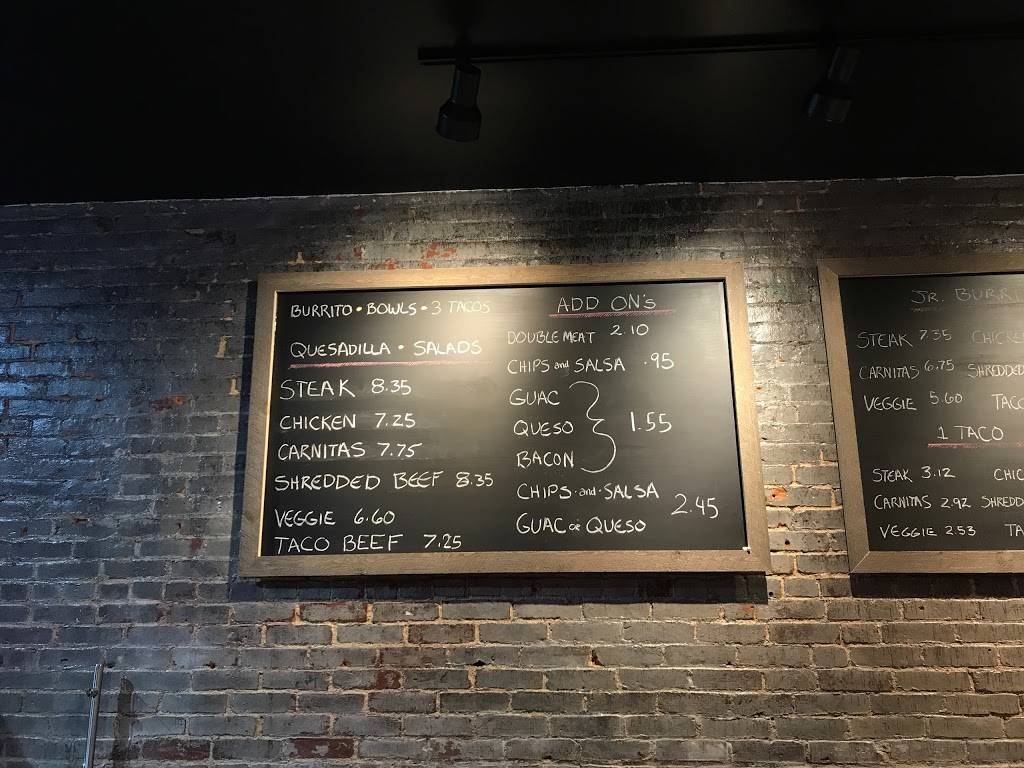 BURRITO • BOWLS • 3 TACOS
QUESADILLA • SALADS
STEAK 8.35
CHICKEN 7.25
CARNITAS 7.75
SHREDDED BEEF 8.35
VEGGIE 6.60
TACO BEEF 7.25
ADD ON's
DOUBLE MEAT 2.10
CHIPS and SALSA .95
GUAC
QUESO 1.55
BACON
CHIPS and SALSA
2.45
GUAC or QUESO
JR. BURRI
STEAK 7.35 CHICKE
CARNITAS 6.75 SHREDDED
VEGGIE 5.60 TACO
1 TACO
STEAK 3.12 CHIC
CARNITAS 2.92 SHREDD
VEGGIE 2.53 TA